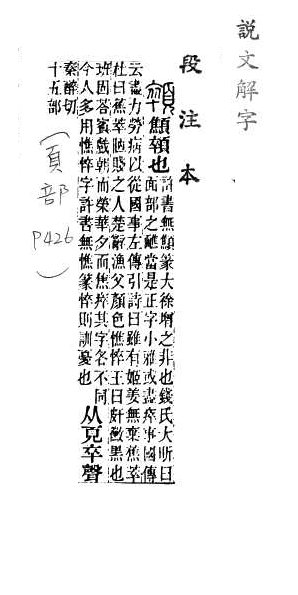 說文解字
段注本
顇顦顇也
許書無顦篆大徐增之非也錢氏大昕曰
面部之醮當是正字小雅或盡瘁事國傳
云盡力勞病以從國事左傳引詩曰雖有姬姜無棄蕉萃
杜曰蕉萃陋賤之人楚辭漁父顏色憔悴王曰皯黴黑也
班固荅賓戲朝而榮華夕而焦瘁其字各不同
今人多用憔悴字許書無憔篆悴則訓憂也
从頁卒聲
秦醉切
十五部
(頁部 P426)